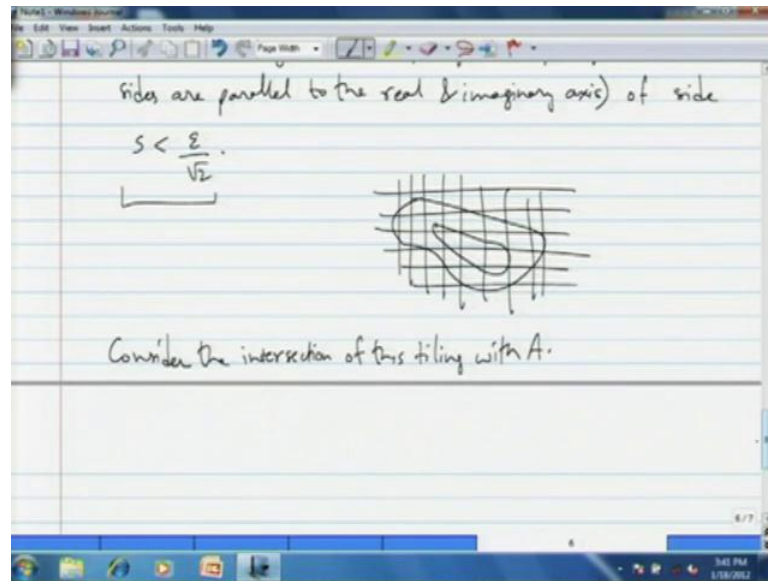 Note1 - Windows Journal
Edit View Insert Actions Tools Help
Page Width
sides are parallel to the real & imaginary axis) of side
s < ε/√2 .
Consider the intersection of this tiling with A.
6/7
6
3:41 PM
1/18/2012